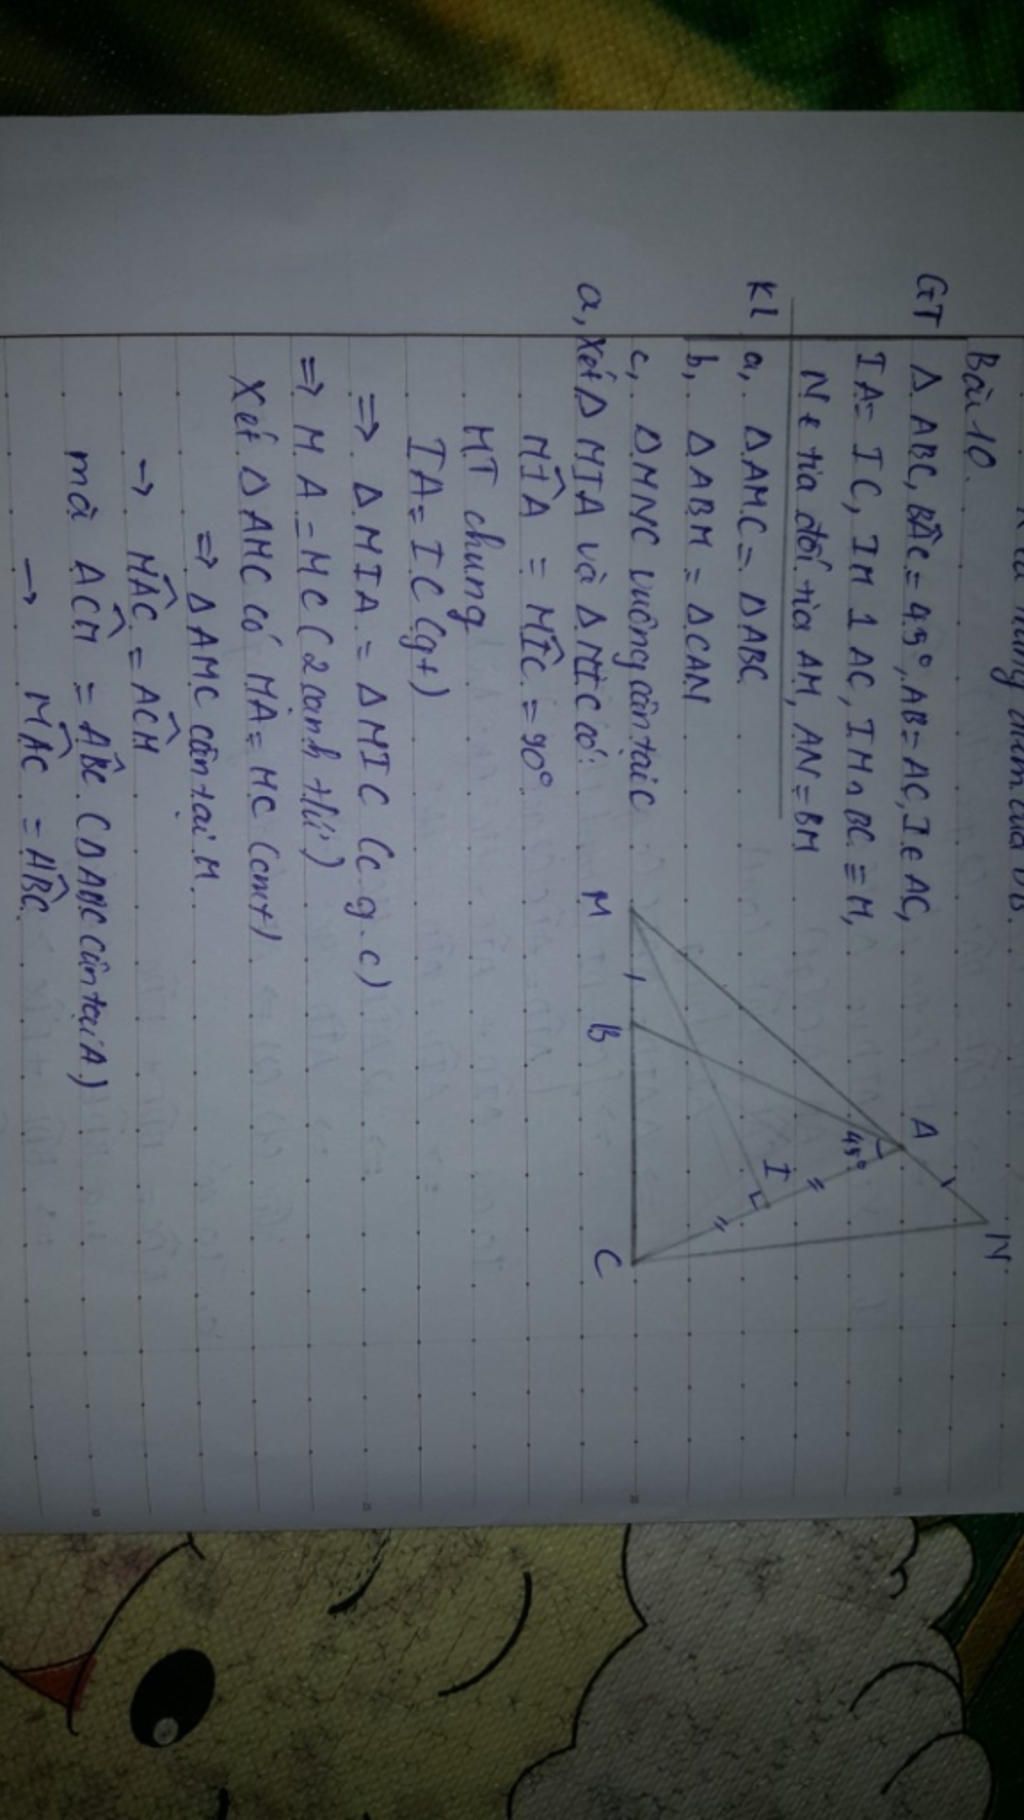 Bài 10.
GT Δ ABC, BÂC = 45°, AB = AC, I ∈ AC,
IA = IC, IM ⊥ AC, IM ∩ BC ≡ M,
N ∈ tia đối tia AM, AN = BM
KL a, ΔAMC = ΔABC
b, ΔABM = ΔCAN
c, ΔMNC vuông cân tại C
M B C A N I 45°
a, Xét Δ MIA và Δ MIC có:
MÎA = MÎC = 90°
MI chung
IA = IC (gt)
=> Δ MIA = Δ MIC (c.g.c)
=> MA = MC (2 cạnh t/ứ)
Xét Δ AMC có MA = MC (cmt)
=> Δ AMC cân tại M
-> MÂC = AĈM
mà AĈM = AB̂C (ΔABC cân tại A)
-> MÂC = AB̂C